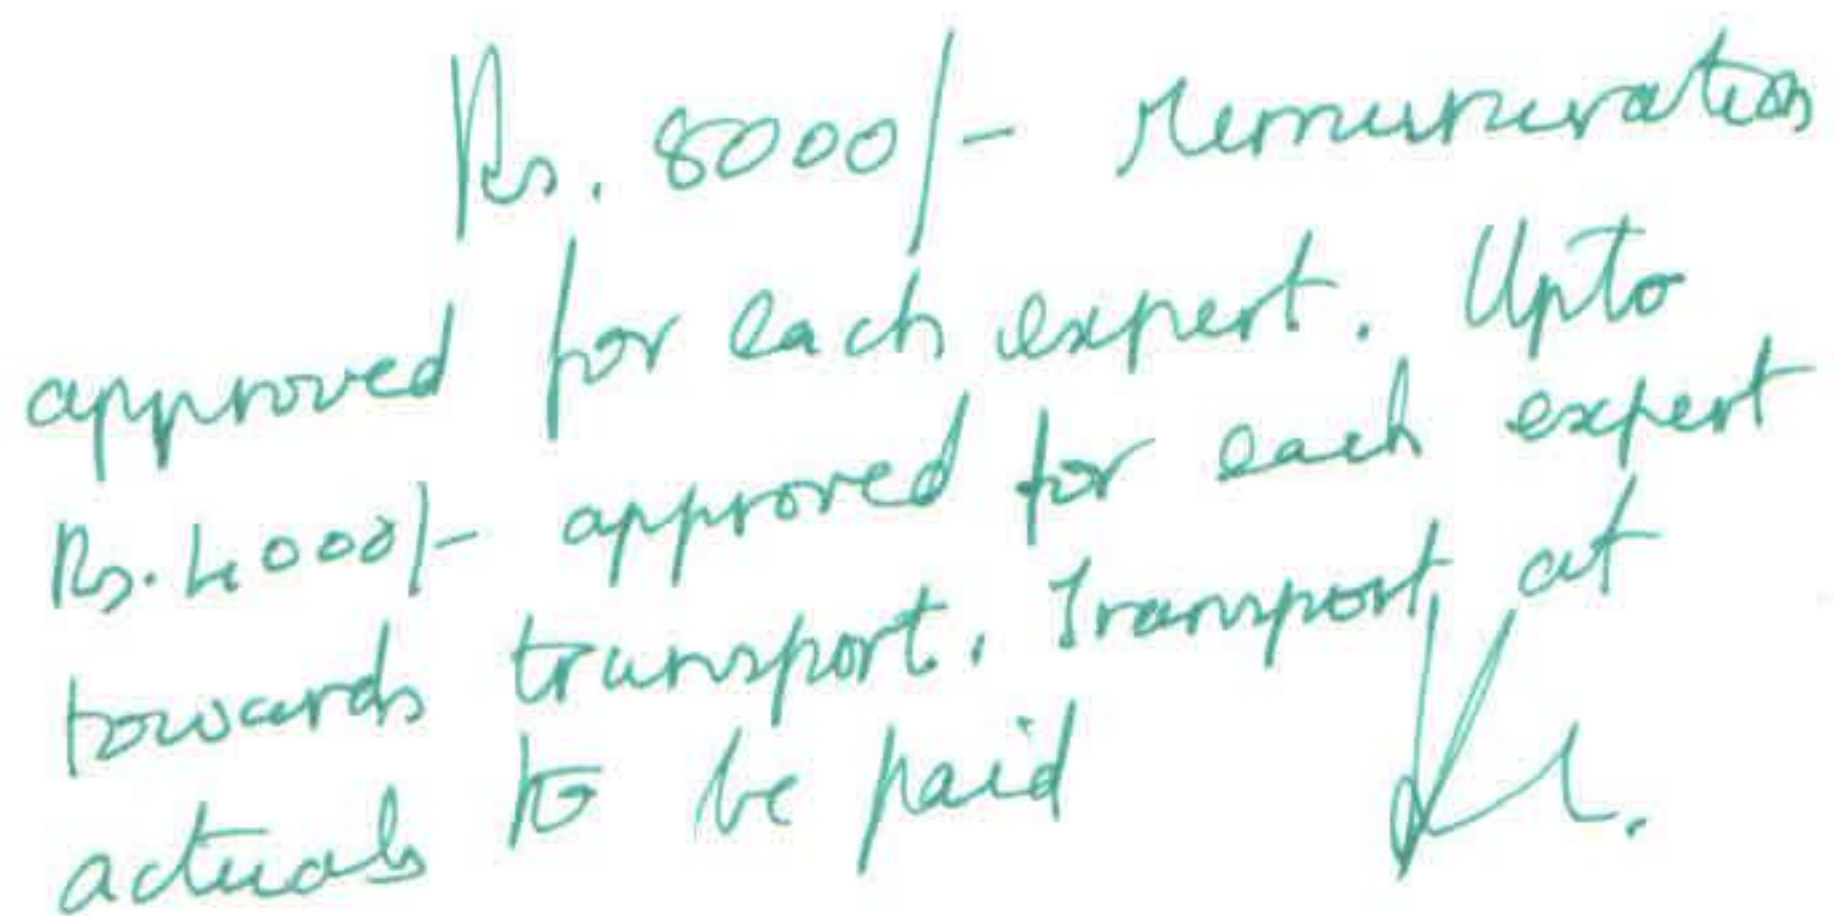 Rs. 8000/- remuneration
approved for each expert. Upto
Rs. 4000/- approved for each expert
towards transport. Transport at
actuals to be paid